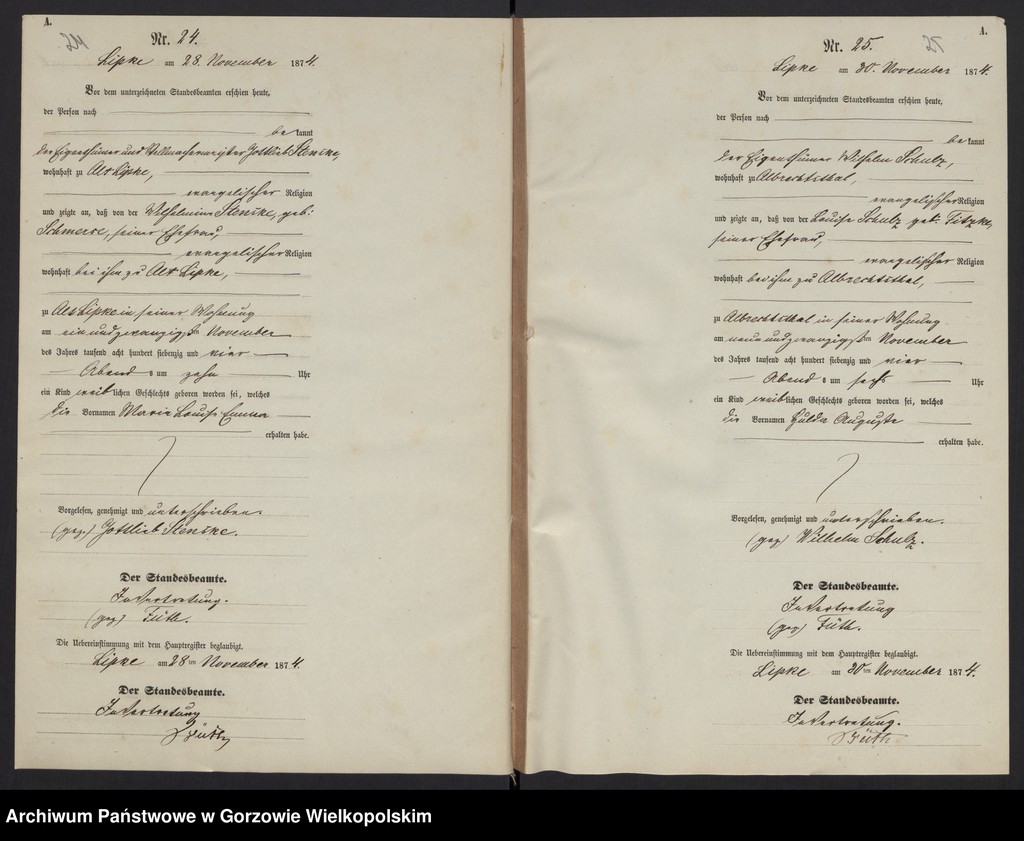 A.
24
Nr. 24.
Lipke am 28. November 1874.
Vor dem unterzeichneten Standesbeamten erschien heute,
der Person nach
bekannt
der Eigenthümer und Stellmachermeister Gottlieb
wohnhaft zu Alt Lipke,
evangelischer Religion
und zeigte an, daß von der Wilhelmine geb:
seiner Ehefrau,
evangelischer Religion
wohnhaft bei ihm zu Alt Lipke,
zu Alt Lipke in seiner Wohnung
am ein und zwanzigsten November
des Jahres tausend acht hundert siebenzig und vier
Abends um zehn Uhr
ein Kind weiblichen Geschlechts geboren worden sei, welches
die Vornamen Marie Louise Emma
erhalten habe.
Vorgelesen, genehmigt und unterschrieben.
(gez) Gottlieb
Der Standesbeamte.
In Vertretung.
(gez) Füth.
Die Uebereinstimmung mit dem Hauptregister beglaubigt.
Lipke am 28ten November 1874.
Der Standesbeamte.
In Vertretung
Füth
A.
25
Nr. 25.
Lipke am 30. November 1874.
Vor dem unterzeichneten Standesbeamten erschien heute,
der Person nach
bekannt
der Eigenthümer Wilhelm Schulz,
wohnhaft zu Albrechtsthal,
evangelischer Religion
und zeigte an, daß von der Louise Schulz geb: Titzke,
seiner Ehefrau,
evangelischer Religion
wohnhaft bei ihm zu Albrechtsthal,
zu Albrechtsthal in seiner Wohnung
am neun und zwanzigsten November
des Jahres tausend acht hundert siebenzig und vier
Abends um sechs Uhr
ein Kind weiblichen Geschlechts geboren worden sei, welches
die Vornamen Hulda Auguste
erhalten habe.
Vorgelesen, genehmigt und unterschrieben.
(gez) Wilhelm Schulz.
Der Standesbeamte.
In Vertretung
(gez) Füth.
Die Uebereinstimmung mit dem Hauptregister beglaubigt.
Lipke am 30ten November 1874.
Der Standesbeamte.
In Vertretung.
Füth
Archiwum Państwowe w Gorzowie Wielkopolskim